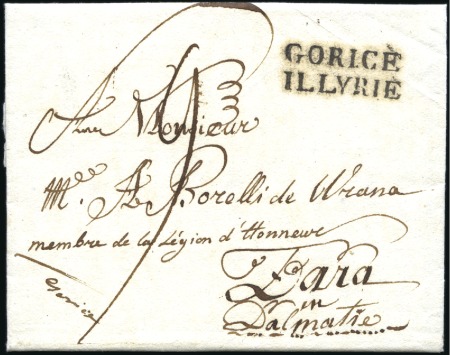 GORICE
ILLYRIE
A Monsieur
M. A Borelli de Wrana
membre de la Légion d'Honneur
Zara
in
Dalmatie